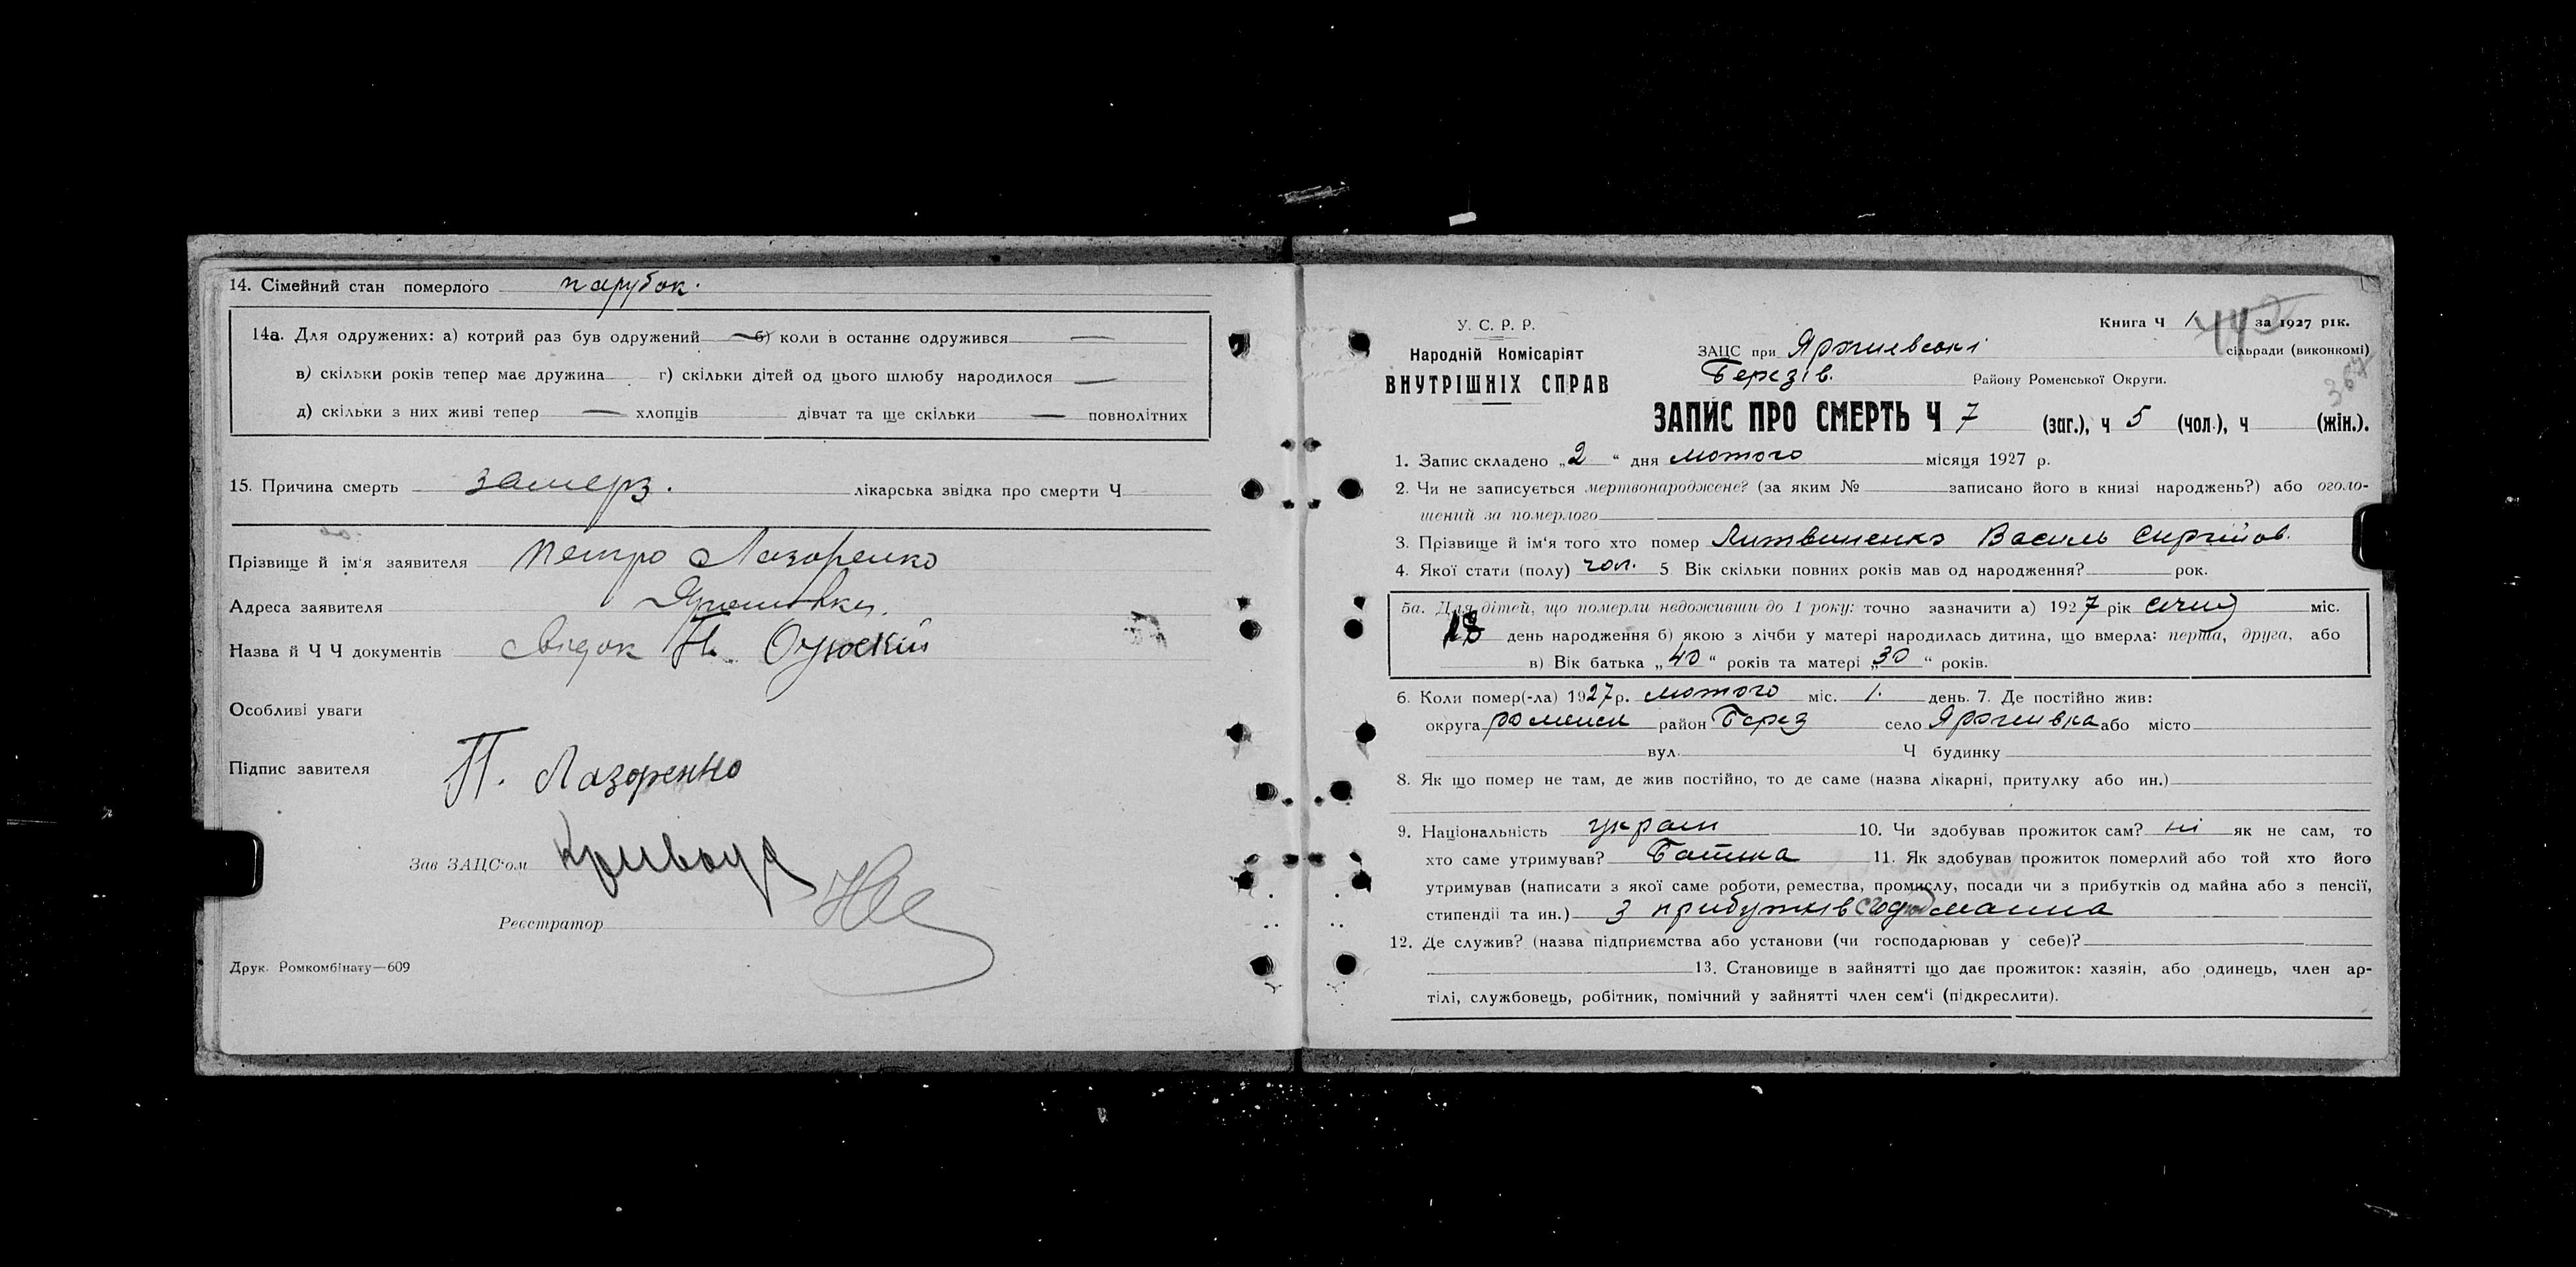 14. Сімейний стан померлого парубок.
14а. Для одружених: а) котрий раз був одружений — б) коли в останнє одружився —
в) скільки років тепер має дружина г) скільки дітей од цього шлюбу народилося —
д) скільки з них живі тепер — хлопців дівчат та ще скільки — повнолітних
15. Причина смерть замерз. лікарська звідка про смерти Ч
Прізвище й ім'я заявителя Петро Лазоренко
Адреса заявителя Ярошовка.
Назва й Ч Ч документів Свідок
Особливі уваги
Підпис завителя П. Лазоренко
Зав ЗАЦС'ом
Реєстратор
Друк. Ромкомбінату—609
Книга Ч 1 за 1927 рік.
У. С. Р. Р.
Народній Комісаріят
ВНУТРІШНІХ СПРАВ
ЗАЦС при сільради (виконкомі)
Березів. Району Роменської Округи.
367
ЗАПИС ПРО СМЕРТЬ Ч 7 (заг.), ч 5 (чол.), ч (жін.).
1. Запис складено „2" дня лютого місяця 1927 р.
2. Чи не записується мертвонароджене? (за яким № записано його в книзі народжень?) або оголо-
шений за померлого
3. Прізвище й ім'я того хто помер Литвиненко Василь Сиргійов.
4. Якої стати (полу) чол. 5 Вік скільки повних років мав од народження? рок.
5а. Для дітей, що померли недоживши до 1 року: точно зазначити а) 1927 рік січня міс.
18 день народження б) якою з лічби у матері народилась дитина, що вмерла: перша, друга, або
в) Вік батька „40" років та матері „30" років.
6. Коли помер(-ла) 1927 р. лютого міс. 1. день. 7. Де постійно жив:
округа роменск район Берез село Ярошивка або місто
вул. Ч будинку
8. Як що помер не там, де жив постійно, то де саме (назва лікарні, притулку або ин.)
9. Національність украин 10. Чи здобував прожиток сам? ні як не сам, то
хто саме утримував? Батька 11. Як здобував прожиток померлий або той хто його
утримував (написати з якої саме роботи, ремества, промислу, посади чи з прибутків од майна або з пенсії,
стипендіі та ин.) з прибутків майна
12. Де служив? (назва підприємства або установи (чи господарював у себе)?
13. Становище в зайнятті що дає прожиток: хазяін, або одинець, член ар-
тілі, службовець, робітник, помічний у зайнятті член сем'і (підкреслити).